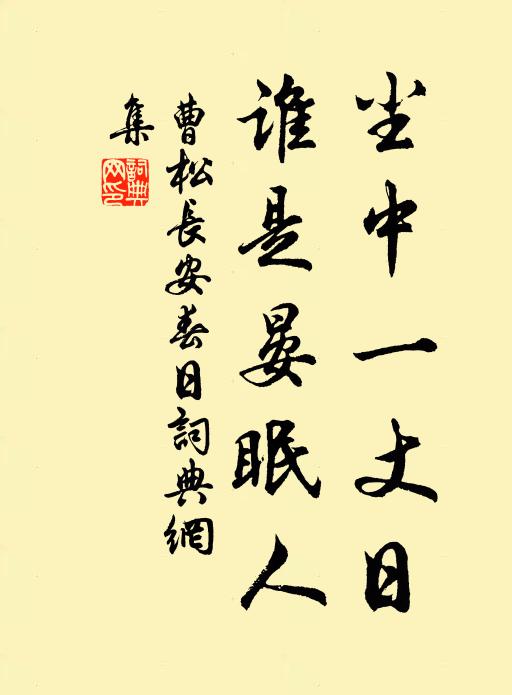 尘中一丈日
谁是晏眠人
曹松長安春日詞典網
集
詞典
网印